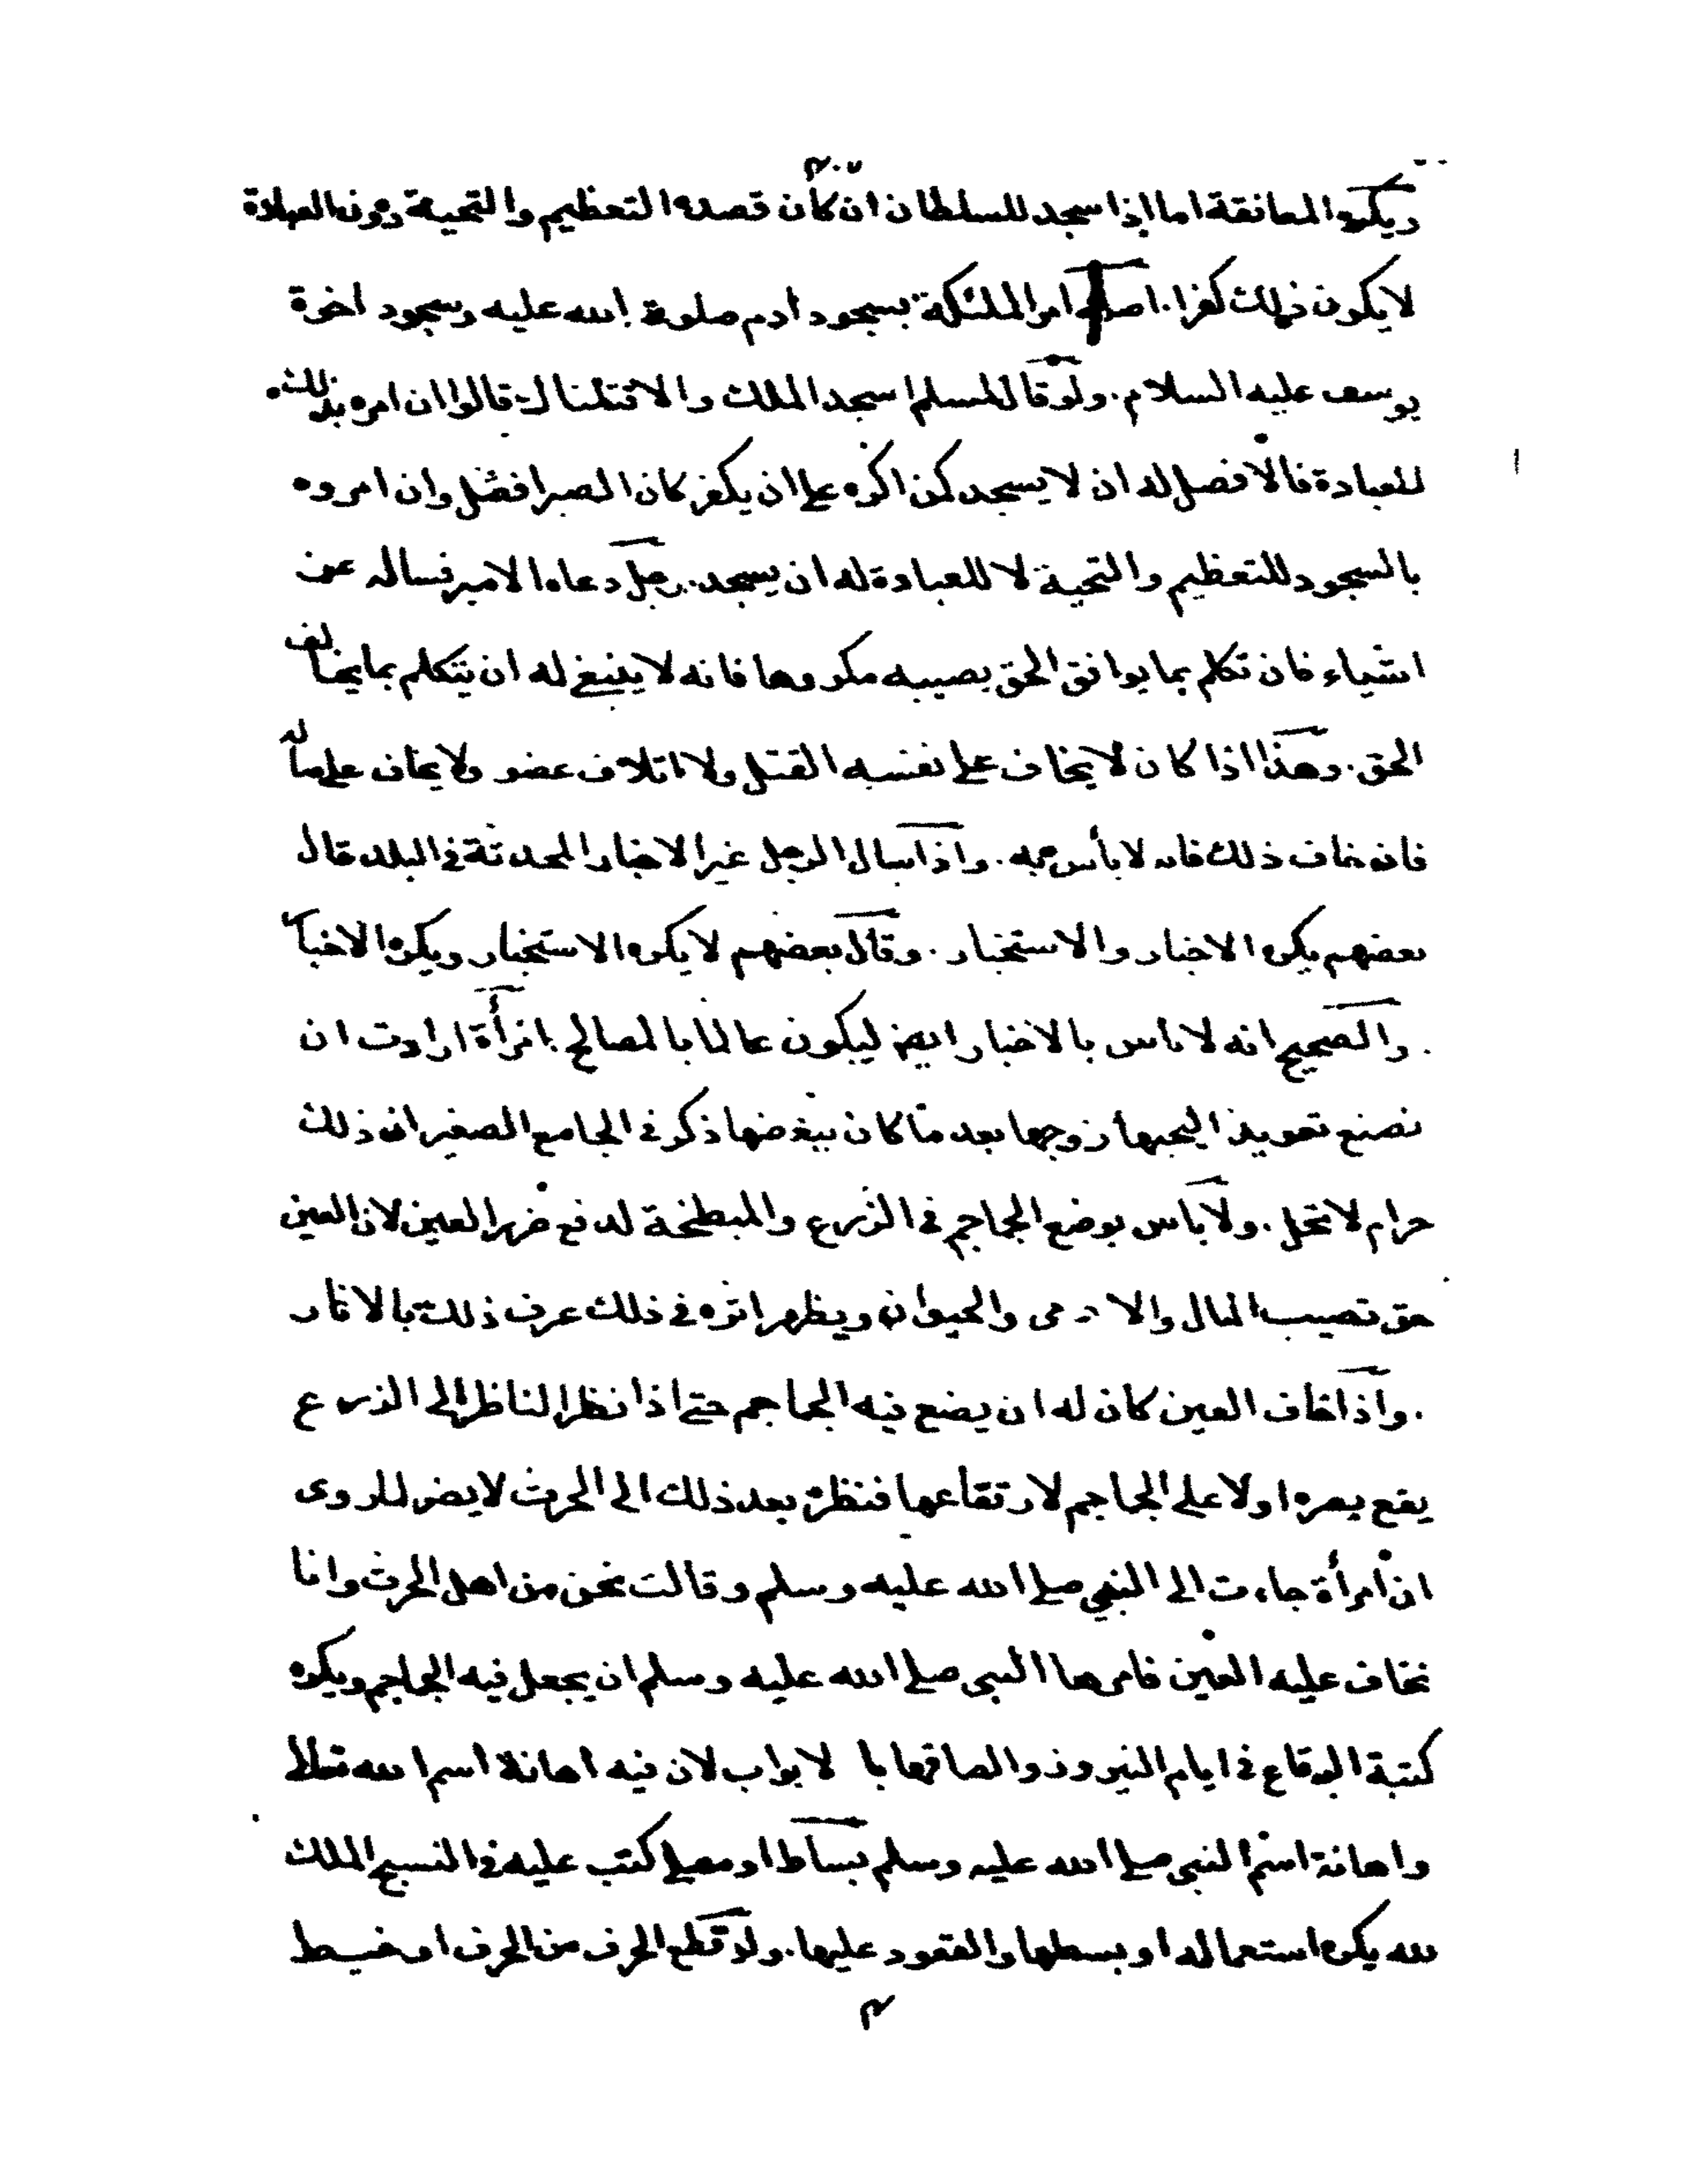 ويكره المعانقة اما اذا سجد للسلطان ان كان قصده التعظيم والتحية دون العبادة
لا يكون ذلك كفرا. اصله امر الملئكة بسجود ادم صلوة الله عليه وسجود اخوة
يوسف عليه السلام. ولو قال لمسلم اسجد للملك والا قتلناك قالوا ان امره بذلك
للعبادة فالافضل له ان لا يسجد كمن اكره على ان يكفر كان الصبر افضل وان امروه
بالسجود للتعظيم والتحية لا للعبادة له ان يسجد. رجل دعاه الامير فساله عن
اشياء فان تكلم بما يوافق الحق يصيبه مكروها فانه لا ينبغي له ان يتكلم بما يخالف
الحق. وهذا اذا كان لا يخاف على نفسه القتل ولا اتلاف عضو ولا يخاف على ماله
فان خاف ذلك فانه لا بأس به. واذا سال الرجل غير الاخبار المحدثة في البلد قال
بعضهم يكره الاخبار والاستخبار. وقال بعضهم لا يكره الاستخبار ويكره الاخبار
. والصحيح انه لا باس بالاخبار ايضا ليكون عالما بالمصالح. امرأة ارادت ان
تصنع تعويذا ليحبها زوجها بعد ما كان يبغضها ذكر في الجامع الصغير ان ذلك
حرام لا تحل. ولا باس بوضع الجماجم في الزرع والمبطخة لدفع ضرر العين لان العين
حق تصيب المال والادمى والحيوان ويظهر اثره في ذلك عرف ذلك بالاثار
. واذا خاف العين كان له ان يضع فيه الجماجم حتى اذا نظر الناظر الى الزرع
يقع بصره اولا على الجماجم لارتقاعها فنظره بعد ذلك الى الحرث لا يضر لما روى
ان امرأة جاءت الى النبي صلى الله عليه وسلم وقالت نحن من اهل الحرث وانا
نخاف عليه العين فامرها النبى صلى الله عليه وسلم ان يجعل فيه الجماجم ويكره
كتبة الرقاع في ايام النيروز والصاقها بالابواب لان فيه اهانة اسم الله تعالى
واهانة اسم النبى صلى الله عليه وسلم بساط او مصلى كتب عليه في النسج الملك
لله يكره استعماله او بسطها والقعود عليها. ولو قطع الحرف من الحرف او خيط